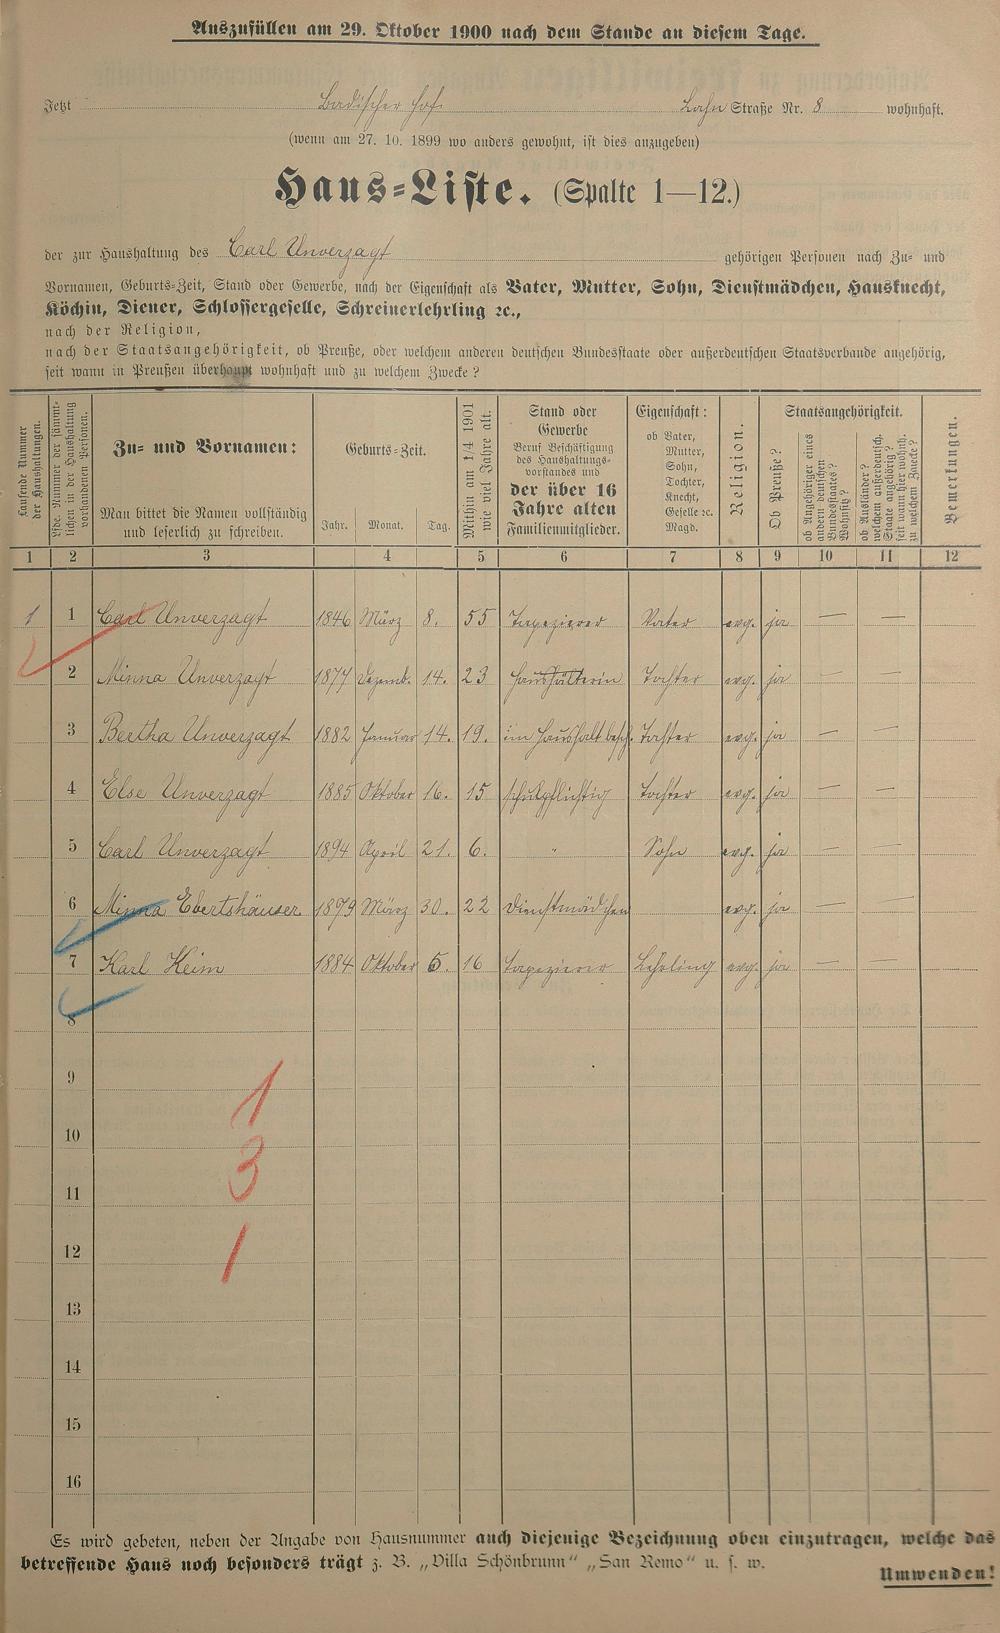 Auszufüllen am 29. Oktober 1900 nach dem Stande an diesem Tage.
Jetzt Badischer Hof. Lahn Straße Nr. 8 wohnhaft.
(wenn am 27. 10. 1899 wo anders gewohnt, ist dies anzugeben)
Haus=Liste. (Spalte 1—12.)
der zur Haushaltung des Carl Unverzagt gehörigen Personen nach Zu= und
Vornamen, Geburts=Zeit, Stand oder Gewerbe, nach der Eigenschaft als Vater, Mutter, Sohn, Dienstmädchen, Hausknecht,
Köchin, Diener, Schlossergeselle, Schreinerlehrling ꝛc.,
nach der Religion,
nach der Staatsangehörigkeit, ob Preuße, oder welchem anderen deutschen Bundesstaate oder außerdeutschen Staatsverbande angehörig,
seit wann in Preußen überhaupt wohnhaft und zu welchem Zwecke?
Laufende Nummer
der Haushaltungen.
Lfde. Nummer der sämmt=
lichen in der Haushaltung
vorhandenen Personen.
Zu= und Vornamen:
Man bittet die Namen vollständig
und leserlich zu schreiben.
Geburts=Zeit.
Jahr. Monat. Tag.
Mithin am 1/4 1901
wie viel Jahre alt.
Stand oder
Gewerbe
Beruf Beschäftigung
des Haushaltungs=
vorstandes und
der über 16
Jahre alten
Familienmitglieder.
Eigenschaft:
ob Vater,
Mutter,
Sohn,
Tochter,
Knecht,
Geselle ꝛc.
Magd.
Religion.
Staatsangehörigkeit.
Ob Preuße?
ob Angehöriger eines
andern deutschen
Bundesstaates?
Wohnsitz?
ob Ausländer?
welchem außerdeutsch.
Staate angehörig?
seit wann hier wohnh.
zu welchem Zwecke?
Bemerkungen.
1 2 3 4 5 6 7 8 9 10 11 12
1 1 Carl Unverzagt 1846 März 8. 55 Tapezierer Vater evg. ja — —
2 Minna Unverzagt 1877 Dezemb. 14. 23 Haushälterin Tochter evg. ja — —
3 Bertha Unverzagt 1882 Januar 14. 19. im Haushalt besch. Tochter evg. ja — —
4 Else Unverzagt 1885 Oktober 16. 15 schulpflichtig Tochter evg. ja — —
5 Carl Unverzagt 1894 April 21. 6. " Sohn evg. ja — —
6 Minna Ebertshäuser 1879 März 30. 22 Dienstmädchen evg. ja — —
7 Karl Keim 1884 Oktober 6. 16 Tapezierer Lehrling evg. ja — —
8
9
1
10
3
11
12
1
13
14
15
16
Es wird gebeten, neben der Angabe von Hausnummer auch diejenige Bezeichnung oben einzutragen, welche das
betreffende Haus noch besonders trägt z. B. „Villa Schönbrunn" „San Remo" u. s. w.
Umwenden!